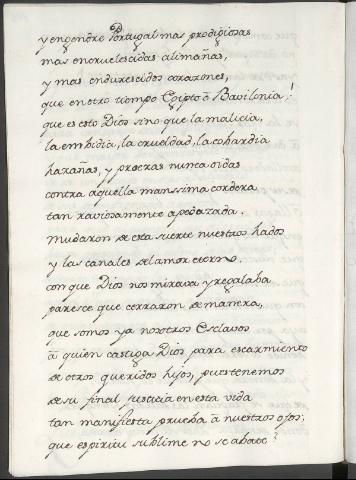 y engendre Portugal mas prodigiosas
mas encruelescidas alimañas,
y mas endurescidos corazones,
que en otro tiempo Egipto ô Bavilonia!
que es esto Dios sino que la malicia,
la embidia, la crueldad, la cobardia
hazañas, y proezas nunca oidas
contra aquella manssima cordera
tan raviosamente apedazada.
mudaron de esta suerte nuestros hados
y las canales del amor eterno.
con que Dios nos mirava y regalaba
paresce que cerraron de manera,
que somos ya nosotros Esclavos
â quien castiga Dios para escarmiento
de otros queridos hijos, pues tenemos
de su final justicia en esta vida
tan manifiesta prueba â nuestros ojos:
que espiritu sublime no se abate?